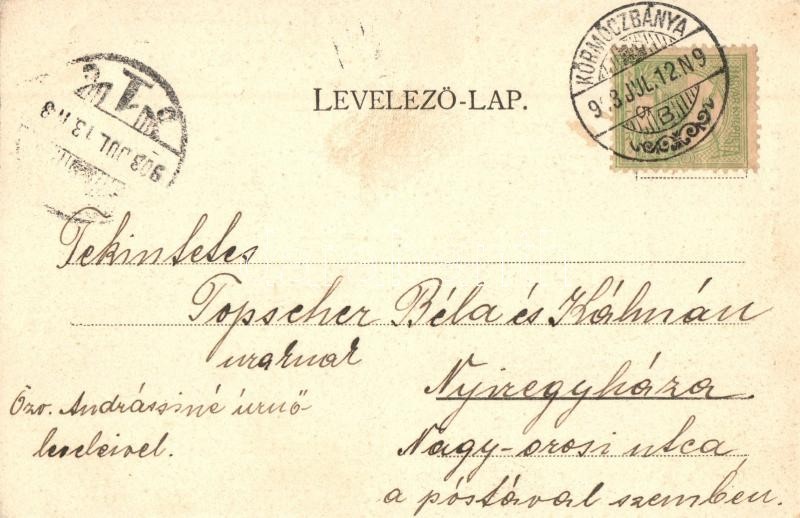 KÖRMÖCZBÁNYA
903 JUL.12.N9
B
903 JUL.13.N3
LEVELEZŐ-LAP.
Tekintetes
Topscher Béla és Kálmán
uraknak
Nyiregyháza.
Özv. Andrássiné úrnő
leveleivel.
Nagy-orosi utca
a póstával szemben.